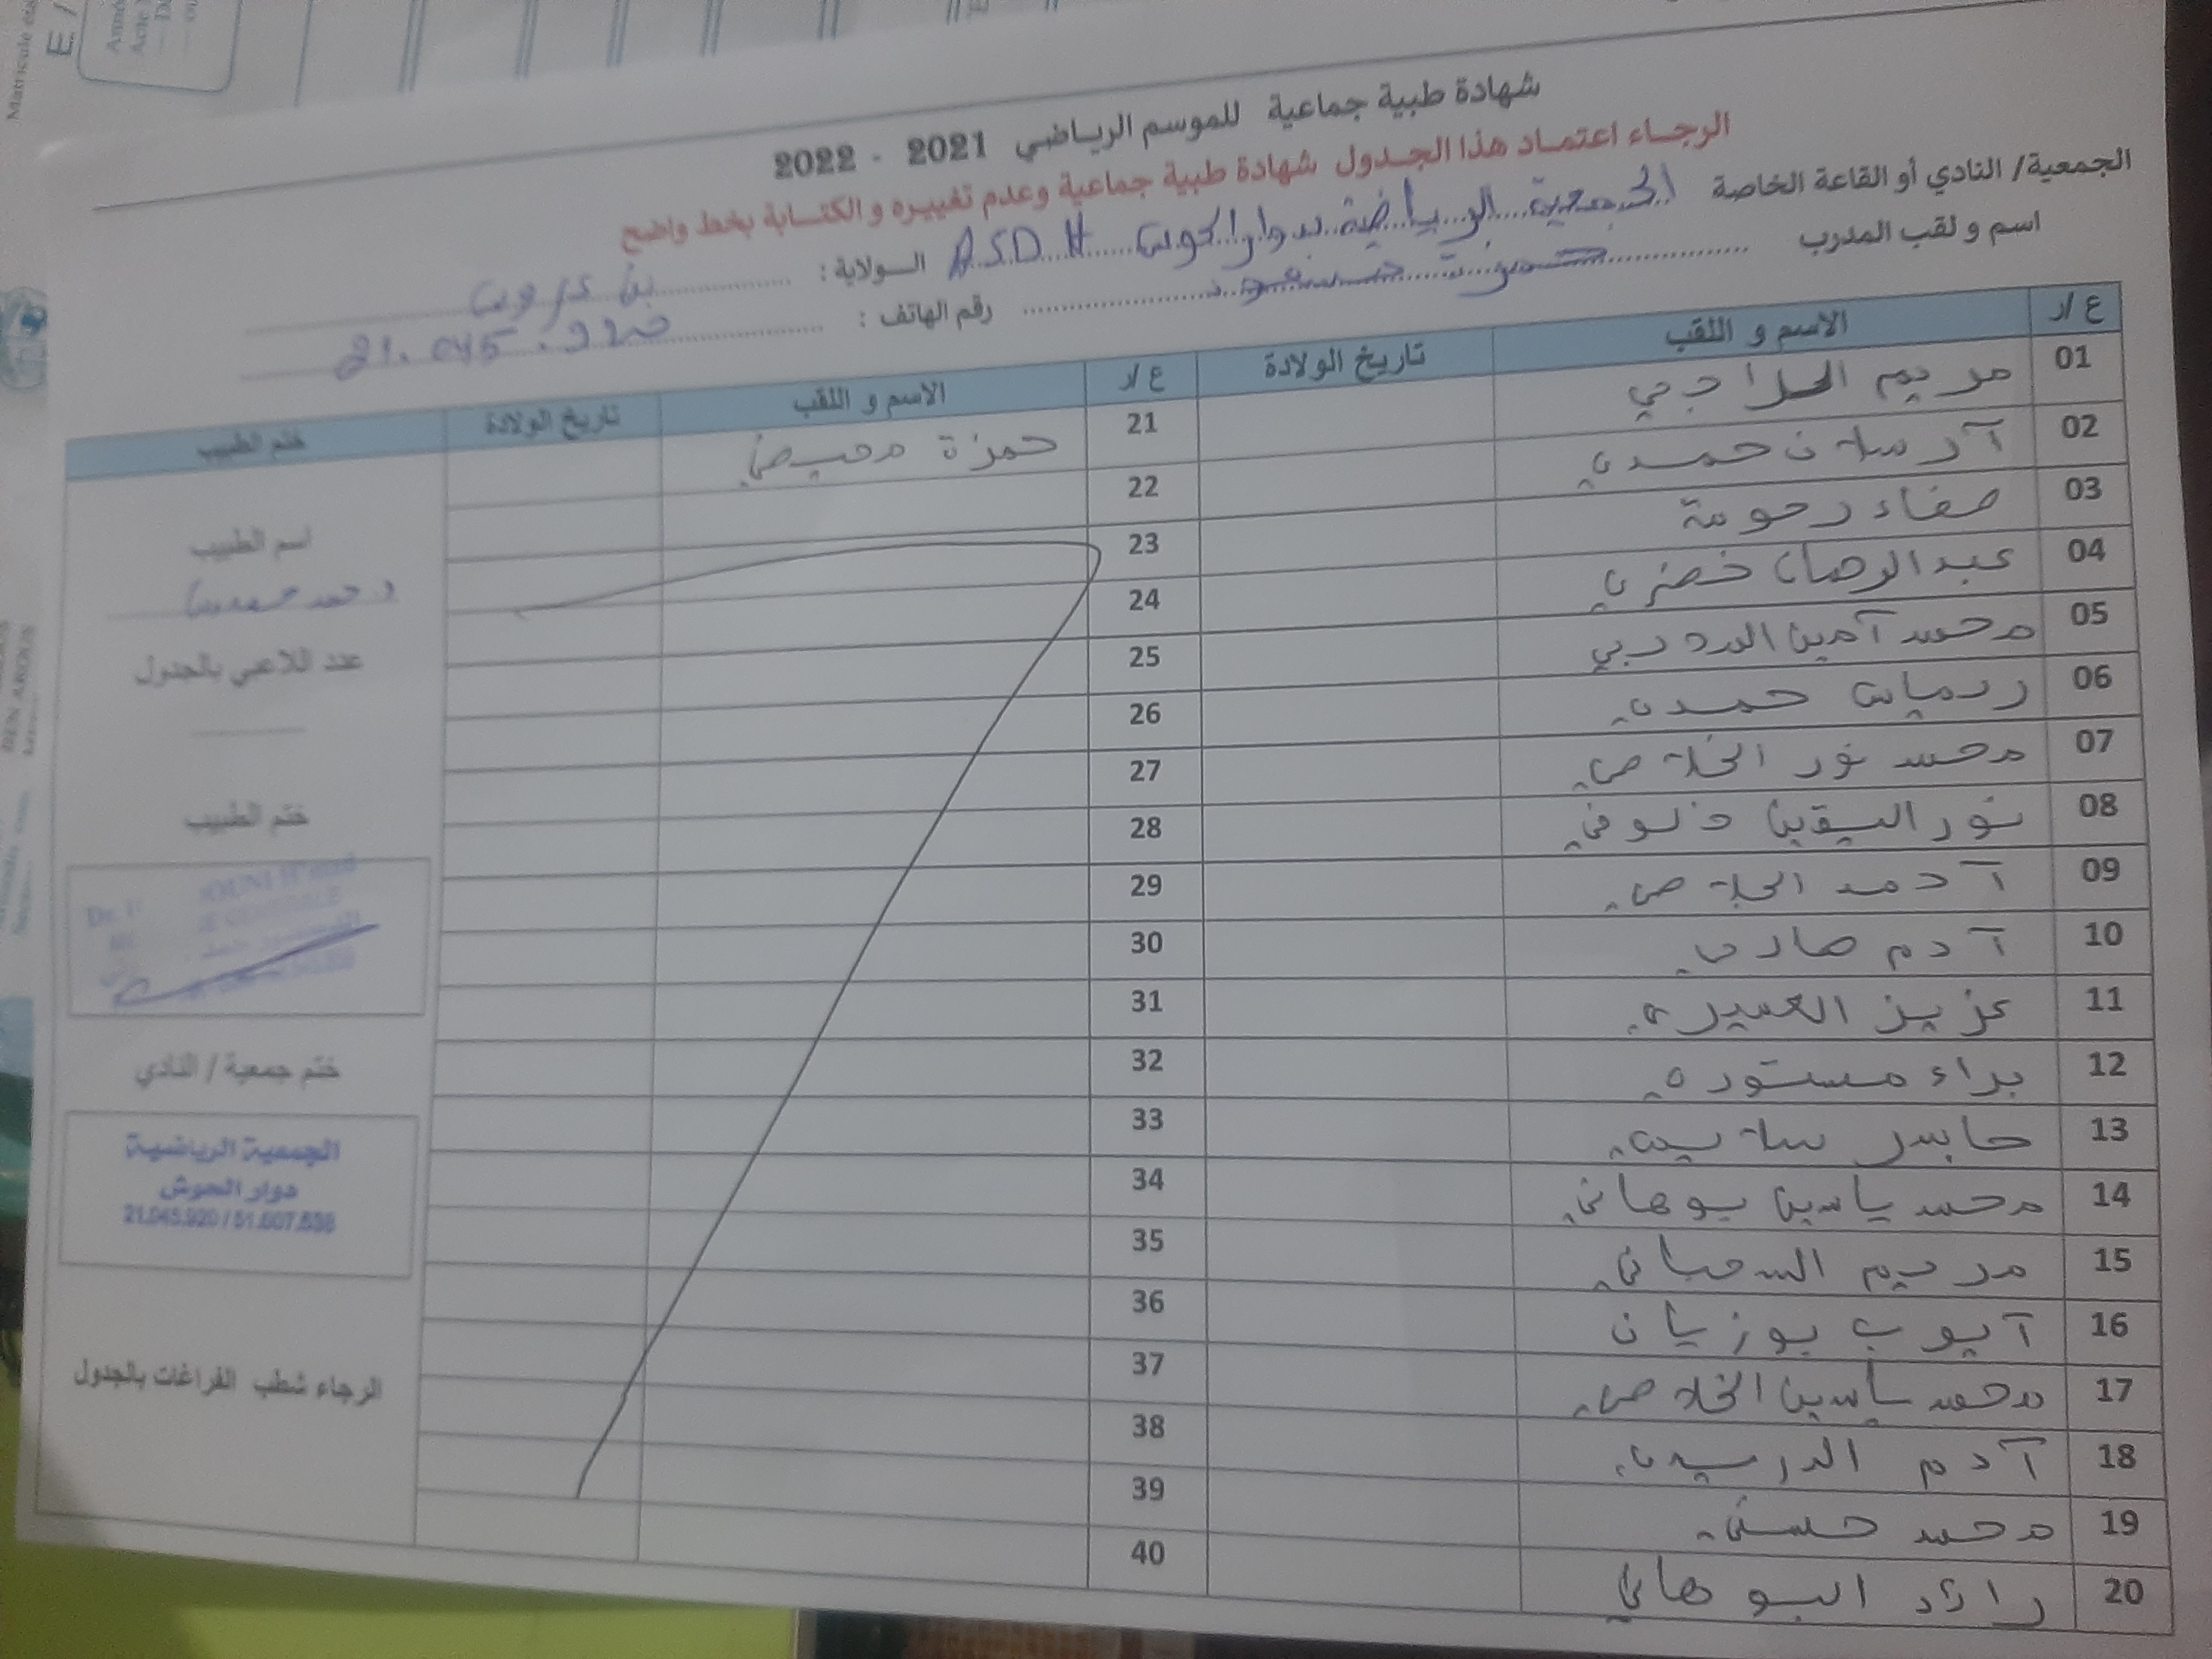 شهادة طبية جماعية للموسم الرياضي 2021 - 2022
الرجاء اعتماد هذا الجدول شهادة طبية جماعية وعدم تغييره و الكتابة بخط واضح
الجمعية/ النادي أو القاعة الخاصة الجمعية الرياضية بدوار الحوش A.S.D.H الولاية : بن عروس
اسم و لقب المدرب رقم الهاتف : 21.045.920
ع /ر الاسم و اللقب تاريخ الولادة ع /ر الاسم و اللقب تاريخ الولادة ختم الطبيب
01 مريم الحلاجي
02 آرسلان حمدي
03 صفاء رحومة
04 عبد الرحمان خضري
05 محمد آمين الدرديري
06 ريماس حمدي
07 محمد نور الخلاصي
08 نور اليقين خلوفي
09 آحمد الخلاصي
10 آدم صاري
11 عزيز العميري
12 براء مستوري
13 جابر سلايمي
14 محمد ياسين بوهاني
15 مريم السحباني
16 آيوب بوزيان
17 محمد ياسين الخلاصي
18 آدم الدريدي
19 محمد حسني
20 رائد البوهاني
21 حمزة محيضي
22
23
24
25
26
27
28
29
30
31
32
33
34
35
36
37
38
39
40
اسم الطبيب
عدد اللاعبي بالجدول
ختم الطبيب
ختم جمعية / النادي
الجمعية الرياضية
دوار الحوش
21.045.920 / 51.607.638
الرجاء شطب الفراغات بالجدول